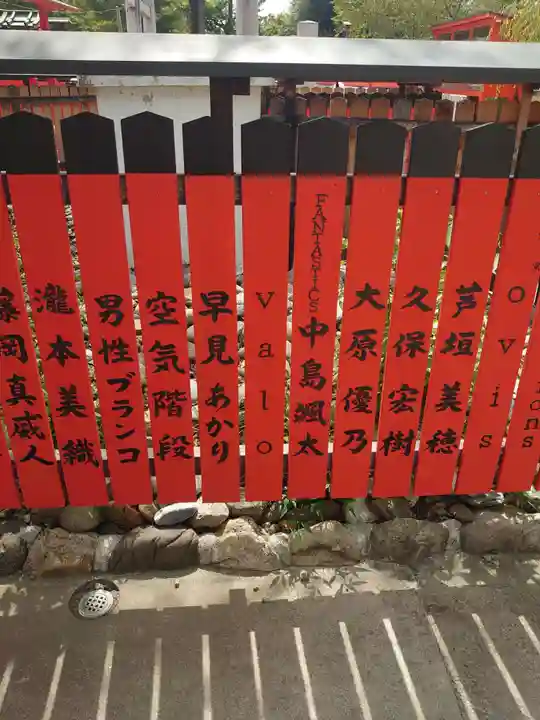 岡真威人
瀧本美織
男性ブランコ
空気階段
早見あかり
valo
FANTASTICS 中島颯太
大原優乃
久保宏樹
芦垣美穂
ovis